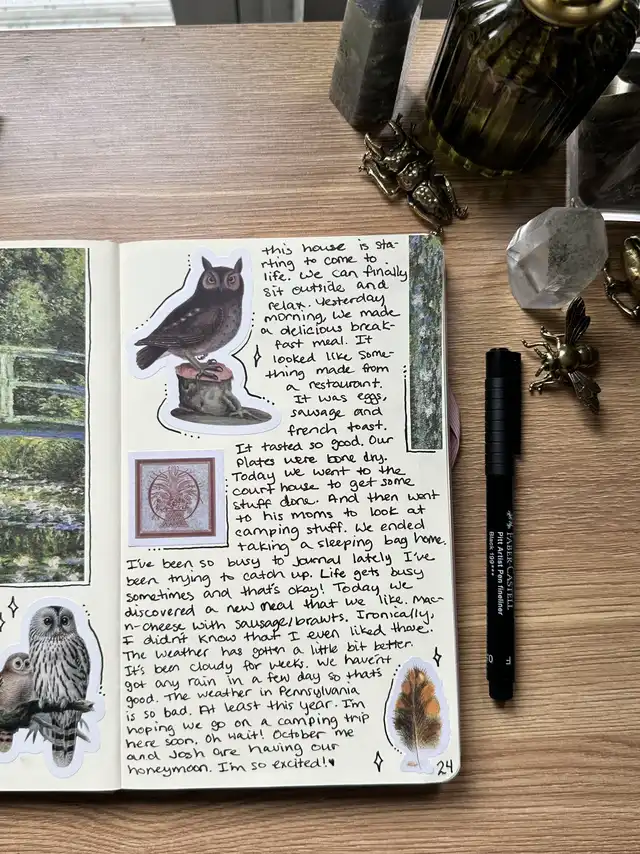 this house is sta-
rting to come to
life. We can finally
sit outside and
relax. Yesterday
morning, we made
a delicious break-
fast meal. It
looked like some-
thing made from
a restaurant.
It was eggs,
sausage and
french toast.
It tasted so good. Our
plates were bone dry.
Today we went to the
court house to get some
stuff done. And then went
to his moms to look at
camping stuff. We ended
taking a sleeping bag home.
I've been so busy to journal lately I've
been trying to catch up. Life gets busy
sometimes and that's okay! Today we
discovered a new meal that we like. Mac-
n-cheese with sausage/brawts. Ironically,
I didn't know that I even liked those.
The weather has gottn a little bit better.
It's been cloudy for weeks. We haven't
got any rain in a few day so that's
good. The weather in Pennsylvania
is so bad. At least this year. I'm
hoping we go on a camping trip
here soon. Oh wait! October me
and Josh are having our
honeymoon. I'm so excited!♥
24
FABER-CASTELL
Pitt Artist Pen fineliner
Black 199***
F